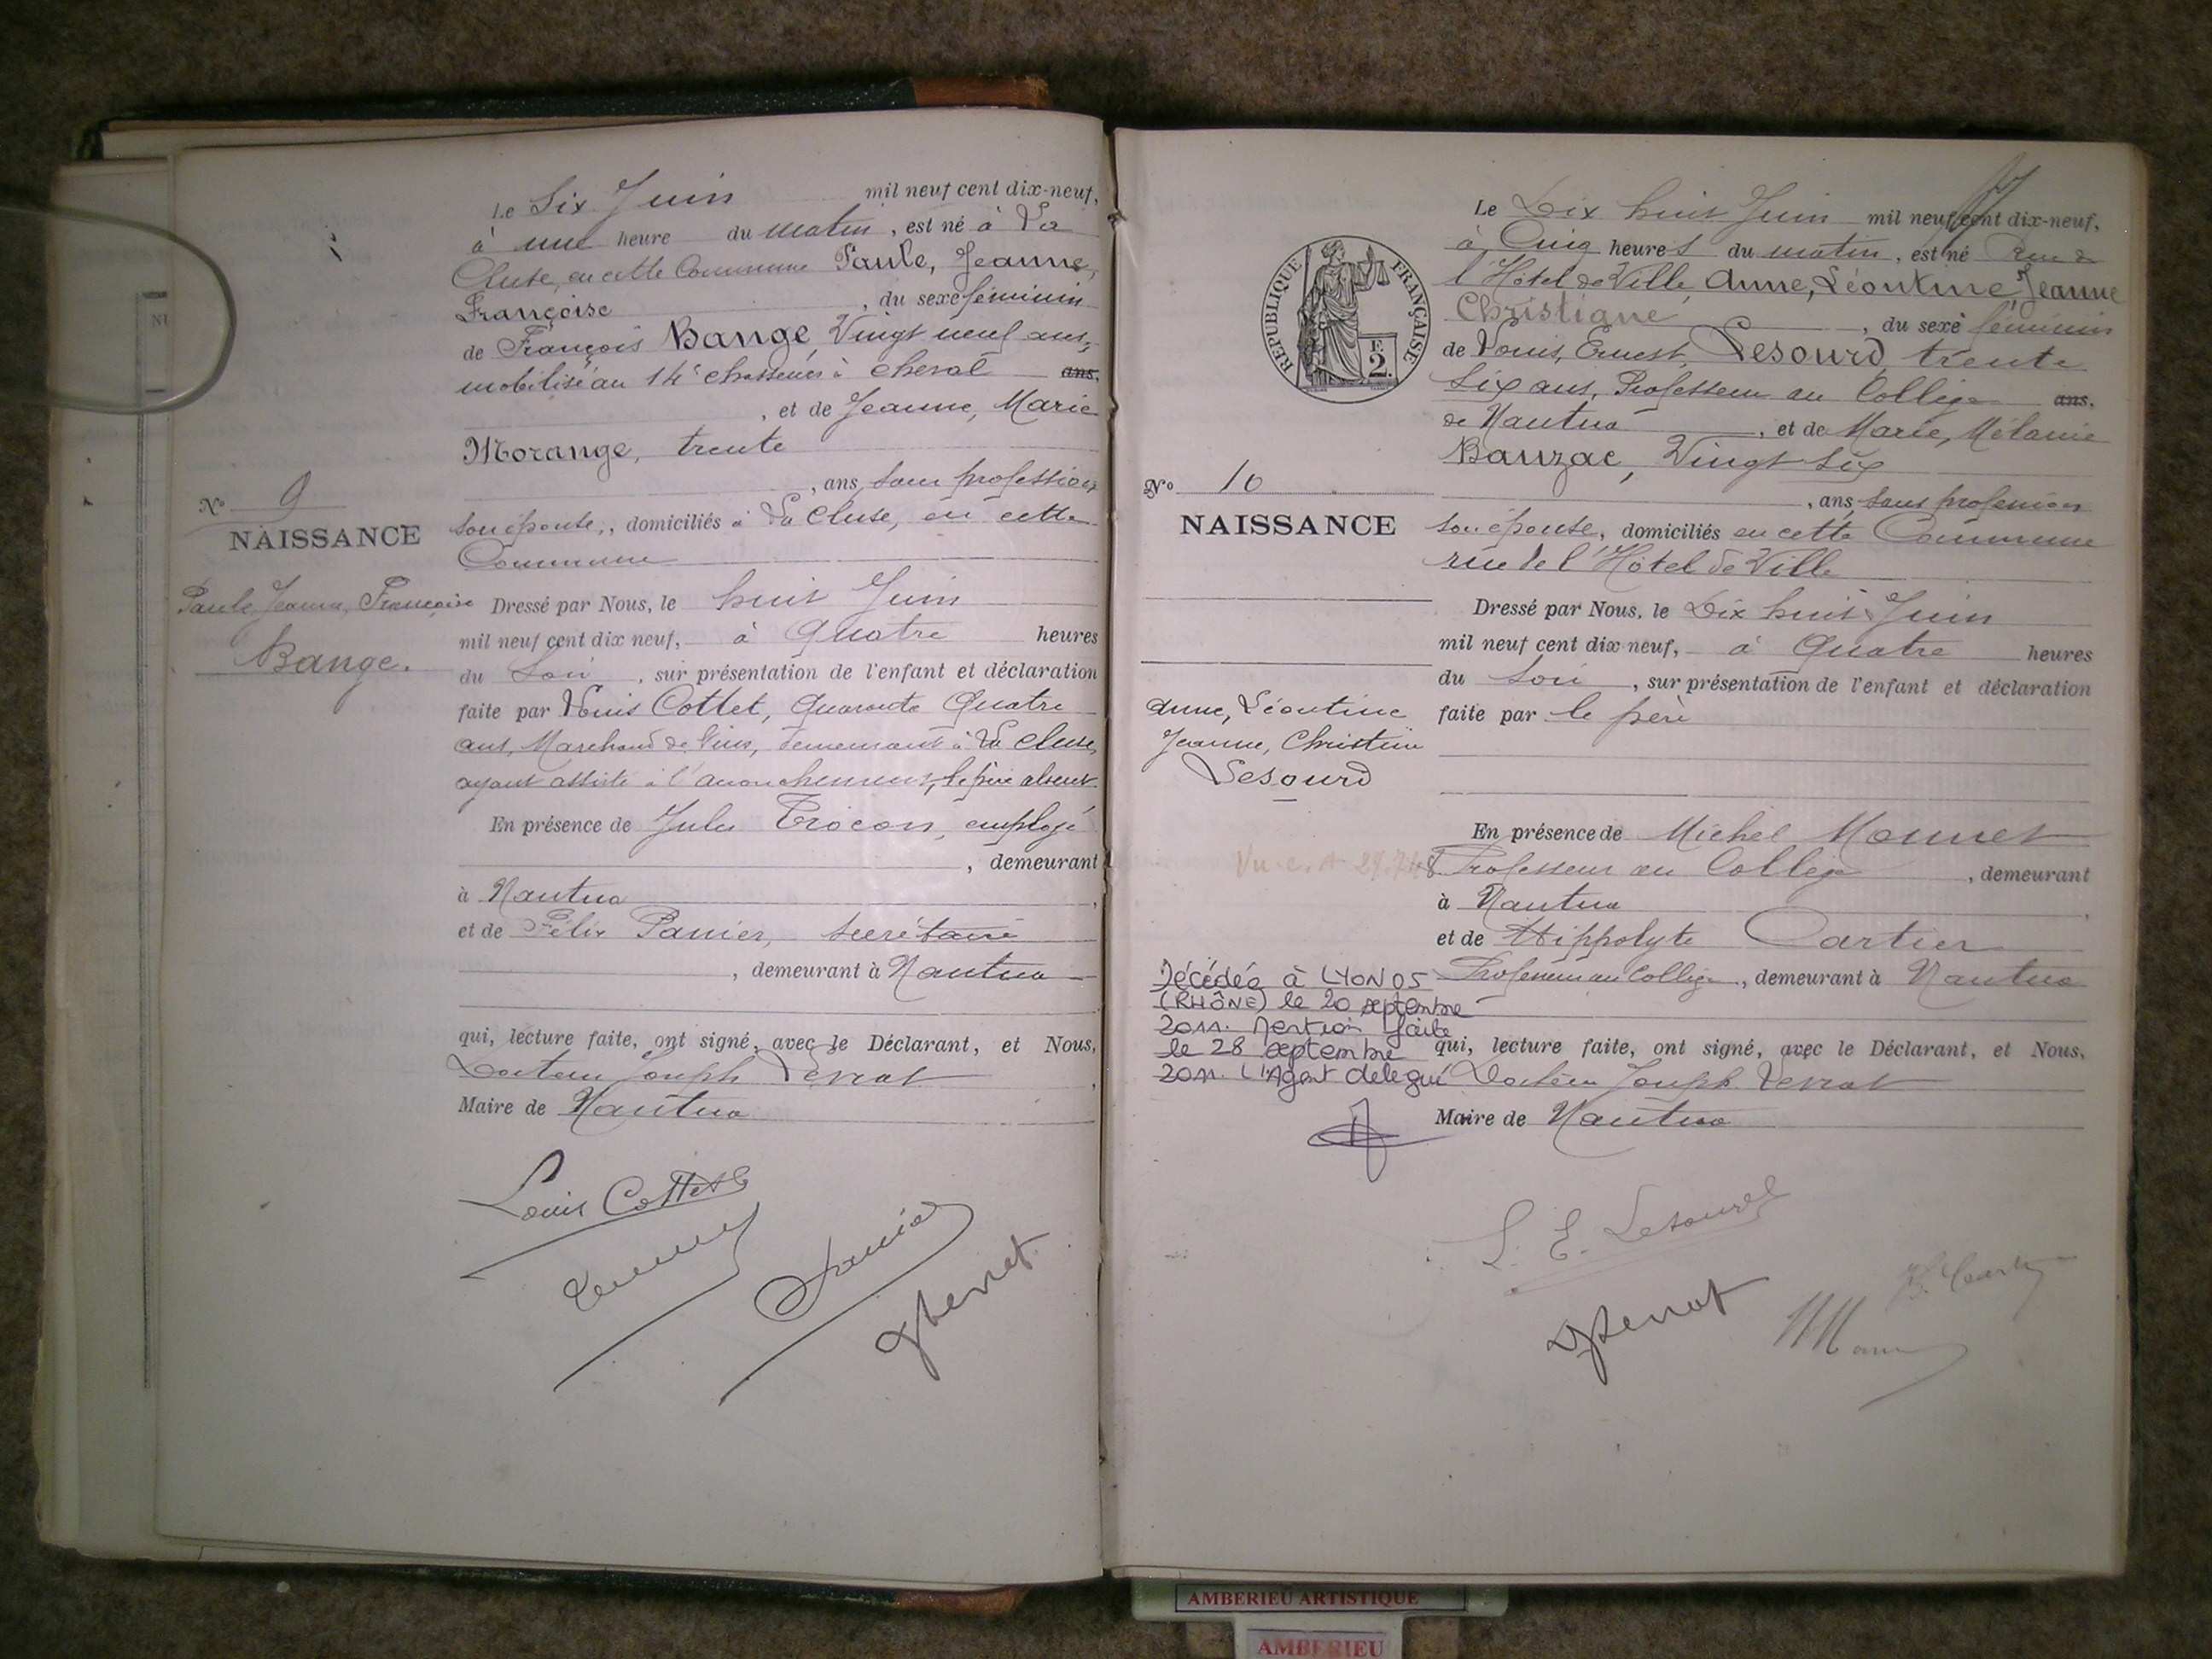 Le Six Juin mil neuf cent dix-neuf,
à une heure du matin, est né à La
Cluse, en cette Commune Paule, Jeanne,
Françoise, du sexe féminin
de François Bange, Vingt neuf ans,
mobilisé au 14e chasseurs à cheval ans,
, et de Jeanne, Marie
Morange, trente
, ans, sans profession
son épouse, domiciliés à La Cluse, en cette
Commune
No 9
NAISSANCE
Paule, Jeanne, Françoise
Bange.
Dressé par Nous, le huit Juin
mil neuf cent dix neuf, à Quatre heures
du Soir, sur présentation de l'enfant et déclaration
faite par Louis Cottet, Quarante Quatre
ans, Marchand de Vins, demeurant à La Cluse,
ayant assisté à l'accouchement, le père absent
En présence de Jules employé
, demeurant
à Nantua
et de Félix Panier, secrétaire
, demeurant à Nantua
qui, lecture faite, ont signé, avec le Déclarant, et Nous,
Docteur Joseph
Maire de Nantua
Louis Cottet
RÉPUBLIQUE FRANÇAISE
F.
2.
Le Dix huit Juin mil neuf cent dix-neuf,
à Cinq heures du matin, est né Rue de
l'Hôtel de Ville, Anne, Léontine, Jeanne
Christiane, du sexe féminin
de Louis, Ernest, Lesourd, trente
Six ans, Professeur au Collège ans,
de Nantua, et de Marie, Mélanie
Bauzac, Vingt Six
, ans, sans profession
son épouse, domiciliés en cette Commune
rue de l'Hôtel de Ville
No 10
NAISSANCE
Anne, Léontine
Jeanne, Christine
Lesourd
Dressé par Nous, le Dix huit Juin
mil neuf cent dix neuf, à Quatre heures
du Soir, sur présentation de l'enfant et déclaration
faite par le père
En présence de Michel Monnet
Professeur au Collège, demeurant
à Nantua
et de Hippolyte Cartier
Professeur au Collège, demeurant à Nantua
qui, lecture faite, ont signé, avec le Déclarant, et Nous,
Docteur Joseph
Maire de Nantua
Décédée à LYON 05
(RHÔNE) le 20 septembre
2011. Mention faite
le 28 septembre
2011. L'Agent délégué
L. E. Lesourd
AMBERIEU ARTISTIQUE
AMBERIEU